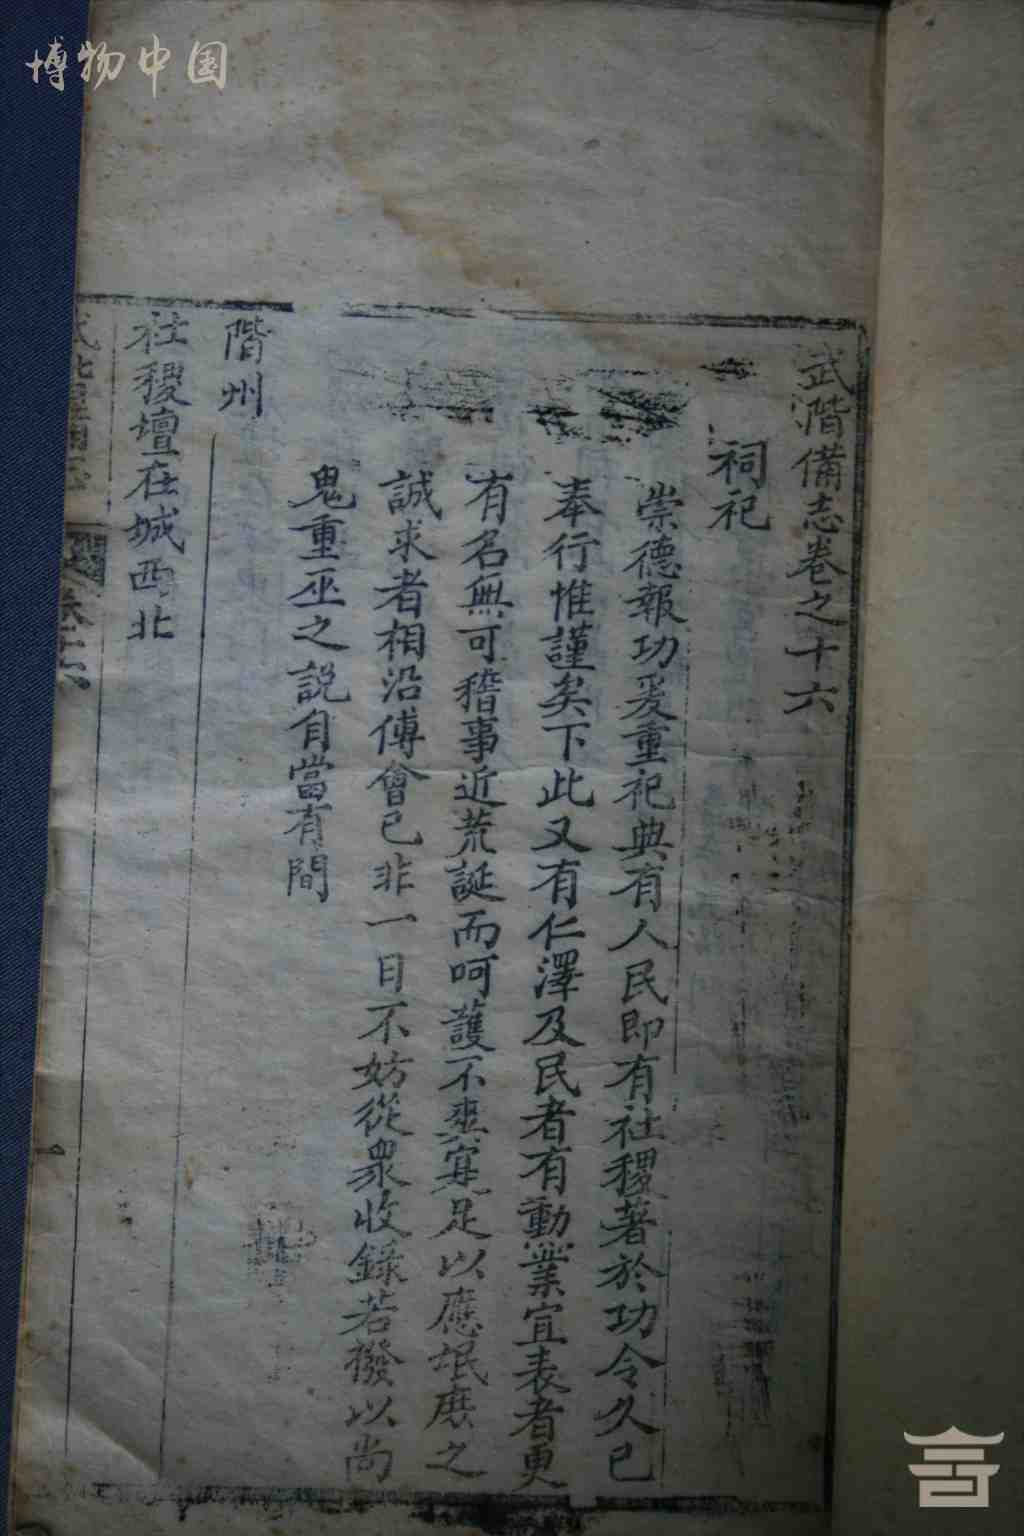 博物中国
武階備志卷之十六
祠祀
崇德報功爰重祀典有人民即有社稷著於功令久已
奉行惟謹矣下此又有仁澤及民者有勳業宜表者更
有名無可稽事近荒誕而呵護不爽寔足以應氓庶之
誠求者相沿傅會已非一日不妨從衆收錄若撥以尚
鬼重巫之說自當有間
階州
社稷壇在城西北
卷十六
一